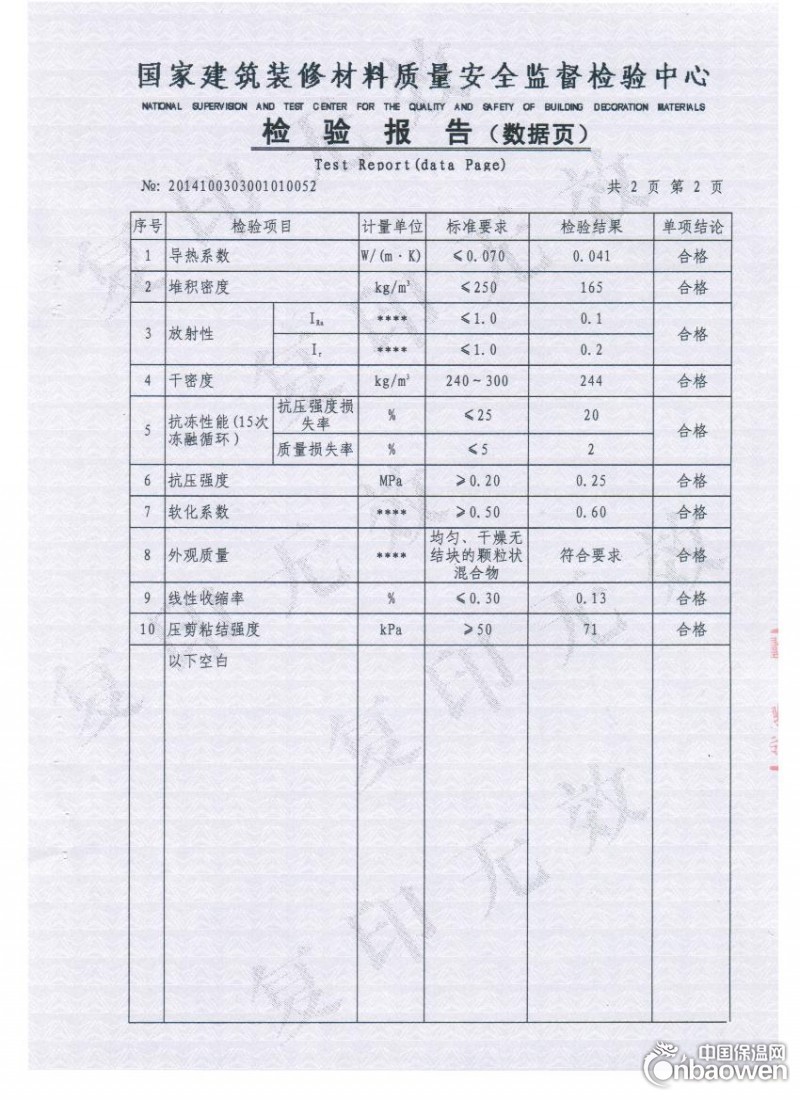 国家建筑装修材料质量安全监督检验中心
NATIONAL SUPERVISION AND TEST CENTER FOR THE QUALITY AND SAFETY OF BUILDING DECORATION MATERIALS
检 验 报 告（数据页）
Test Report(data Page)
№: 2014100303001010052 共 2 页 第 2 页
序号 检验项目 计量单位 标准要求 检验结果 单项结论
1 导热系数 W/(m·K) ≤0.070 0.041 合格
2 堆积密度 kg/m³ ≤250 165 合格
3 放射性 I_Ra **** ≤1.0 0.1 合格
I_r **** ≤1.0 0.2
4 干密度 kg/m³ 240~300 244 合格
5 抗冻性能(15次冻融循环) 抗压强度损失率 % ≤25 20 合格
质量损失率 % ≤5 2
6 抗压强度 MPa ≥0.20 0.25 合格
7 软化系数 **** ≥0.50 0.60 合格
8 外观质量 **** 均匀、干燥无结块的颗粒状混合物 符合要求 合格
9 线性收缩率 % ≤0.30 0.13 合格
10 压剪粘结强度 kPa ≥50 71 合格
以下空白
复印无效
复印无效
复印无效
复印无效
复印无效
中国保温网
cnbaowen